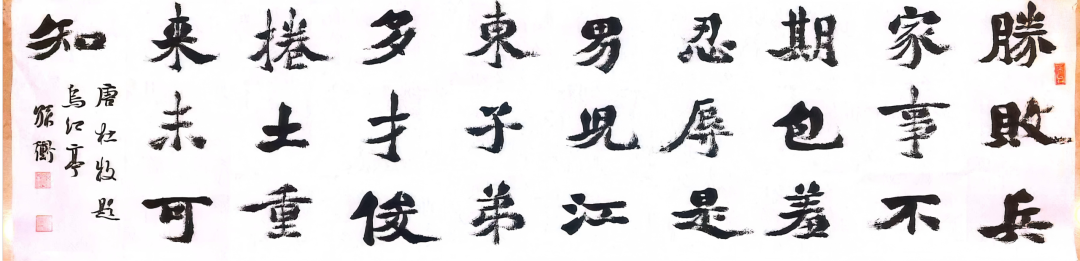 勝敗兵
家事不
期包羞
忍辱是
男児江
東子弟
多才俊
捲土重
来未可
知
唐杜牧題
烏江亭